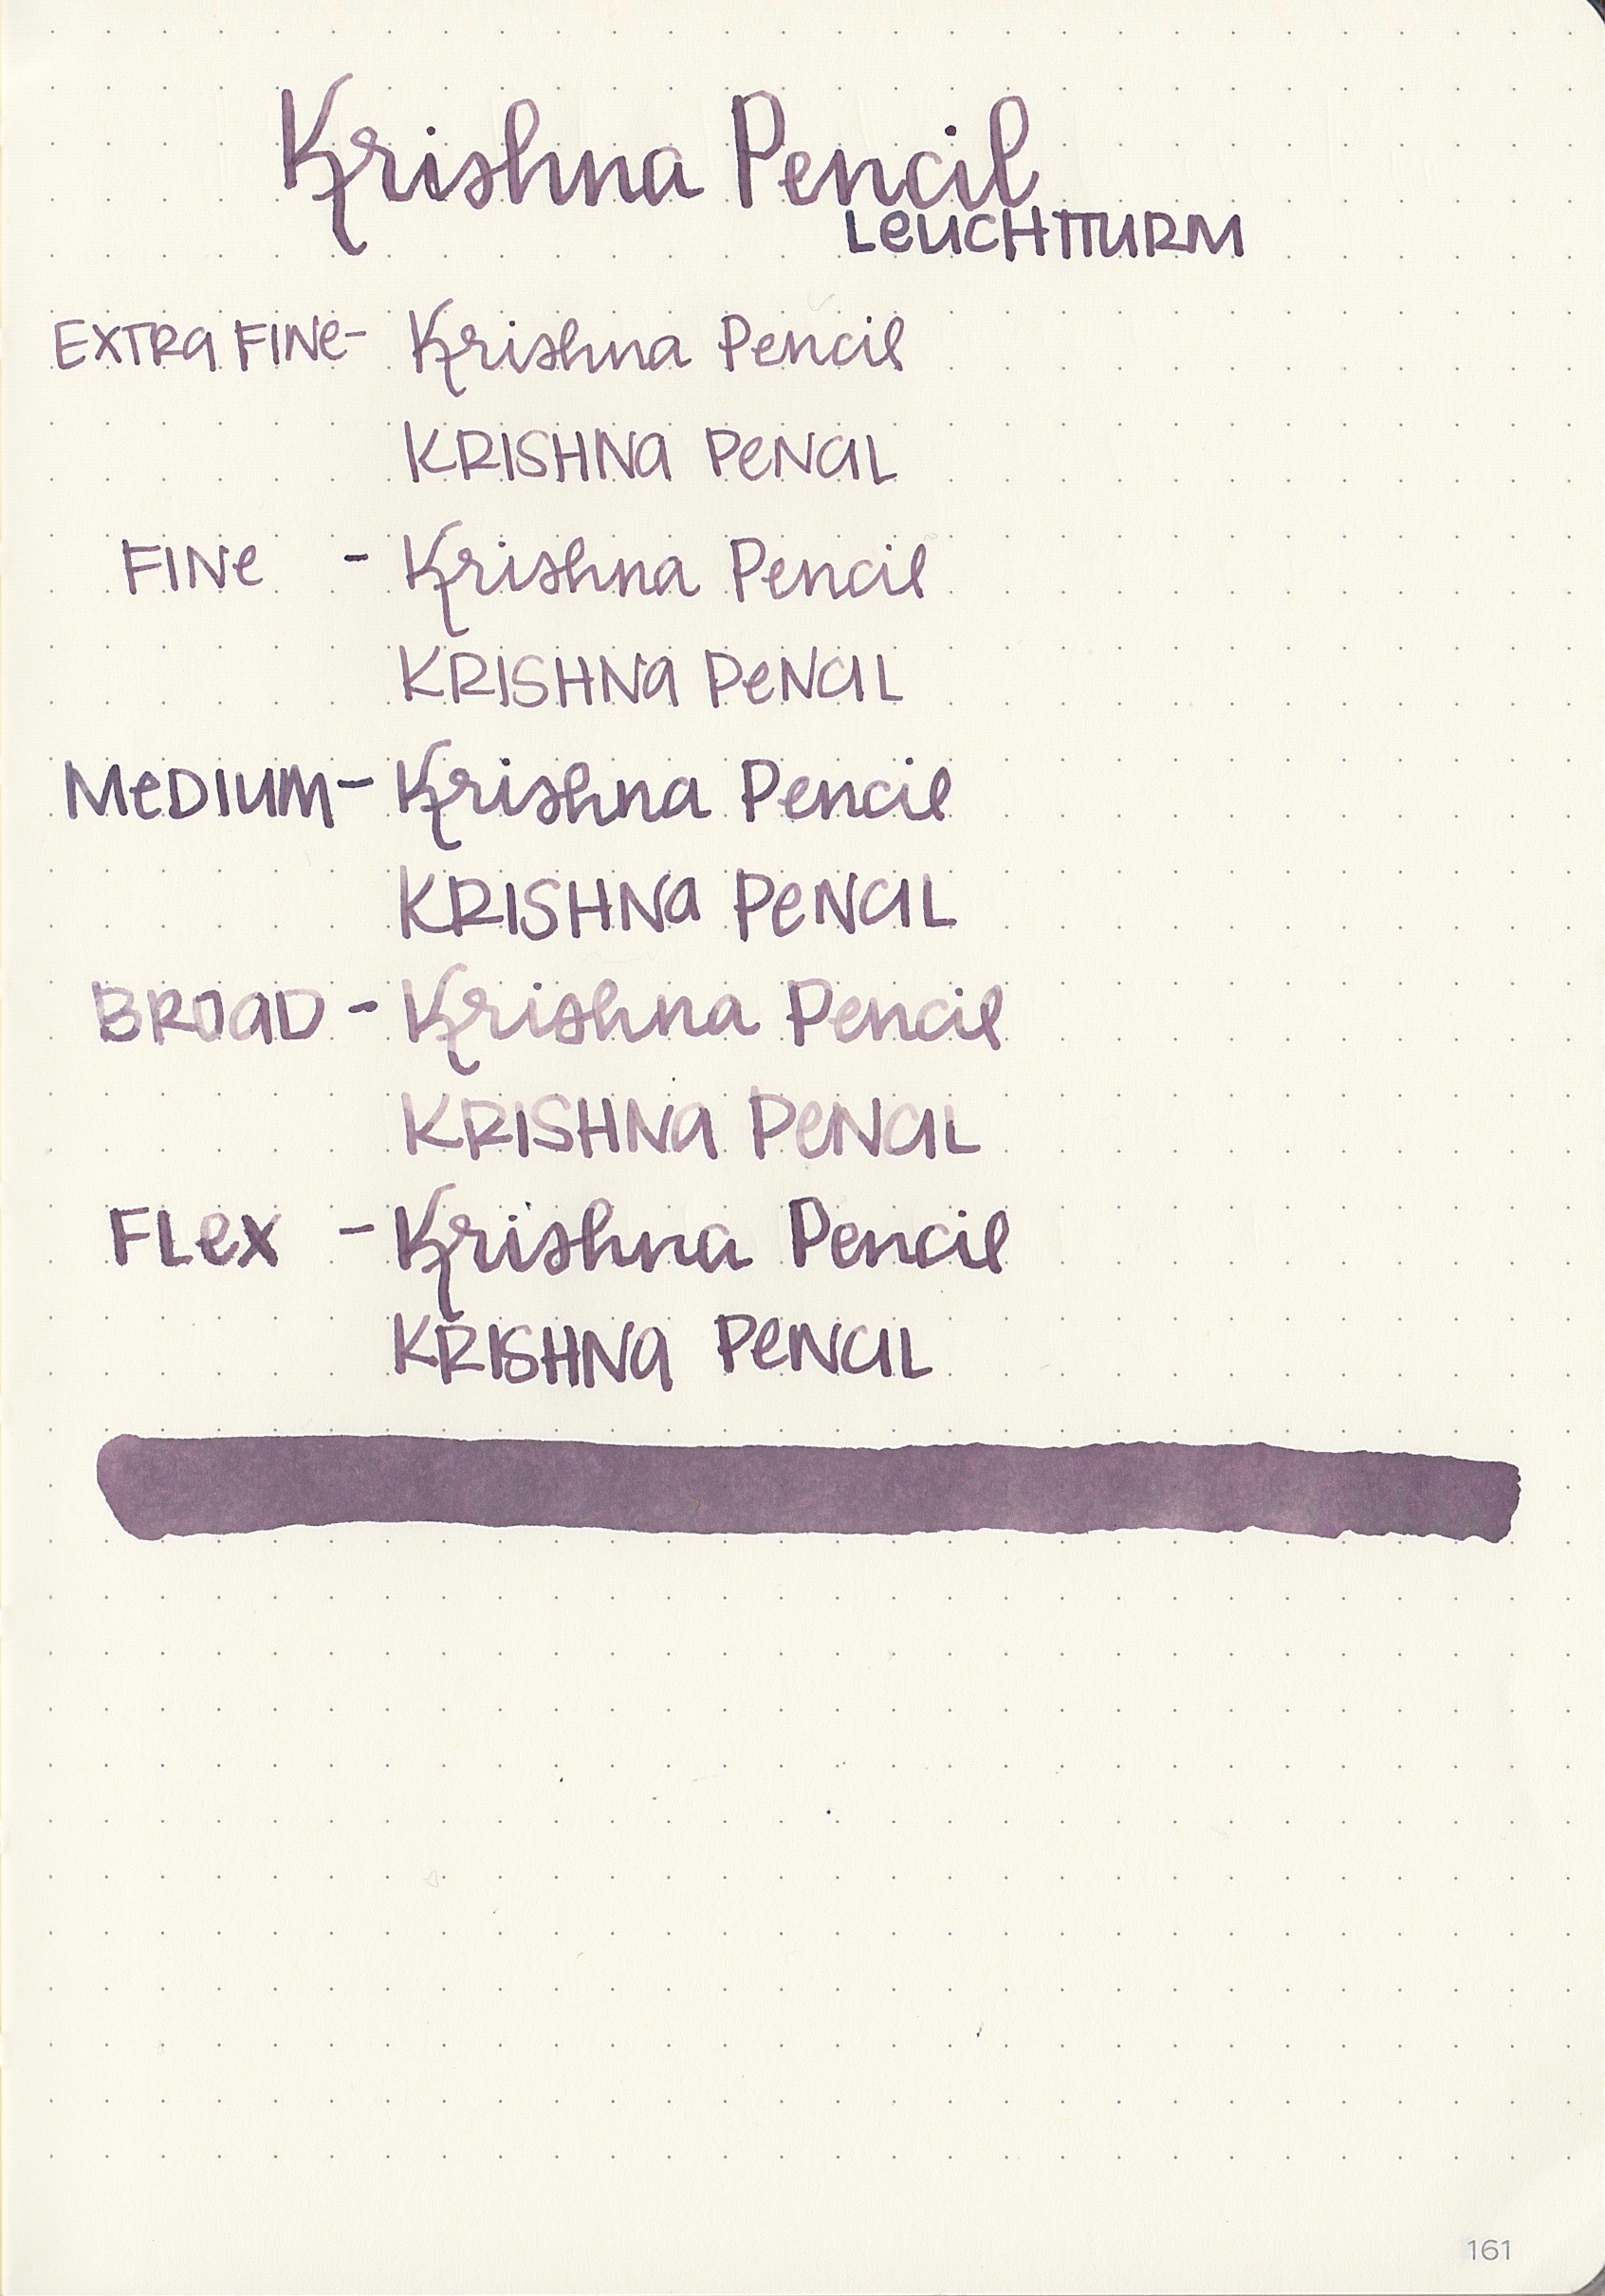 Krishna Pencil
LeUCHTTURM
EXTRa FINe- Krishna Pencil
KRISHNa PeNCIL
FINe - Krishna Pencil
KRISHNa PeNCIL
MeDIUM- Krishna Pencil
KRISHNa PeNCIL
BROaD - Krishna Pencil
KRISHNa PeNCIL
FLex - Krishna Pencil
KRISHNa PeNCIL
161